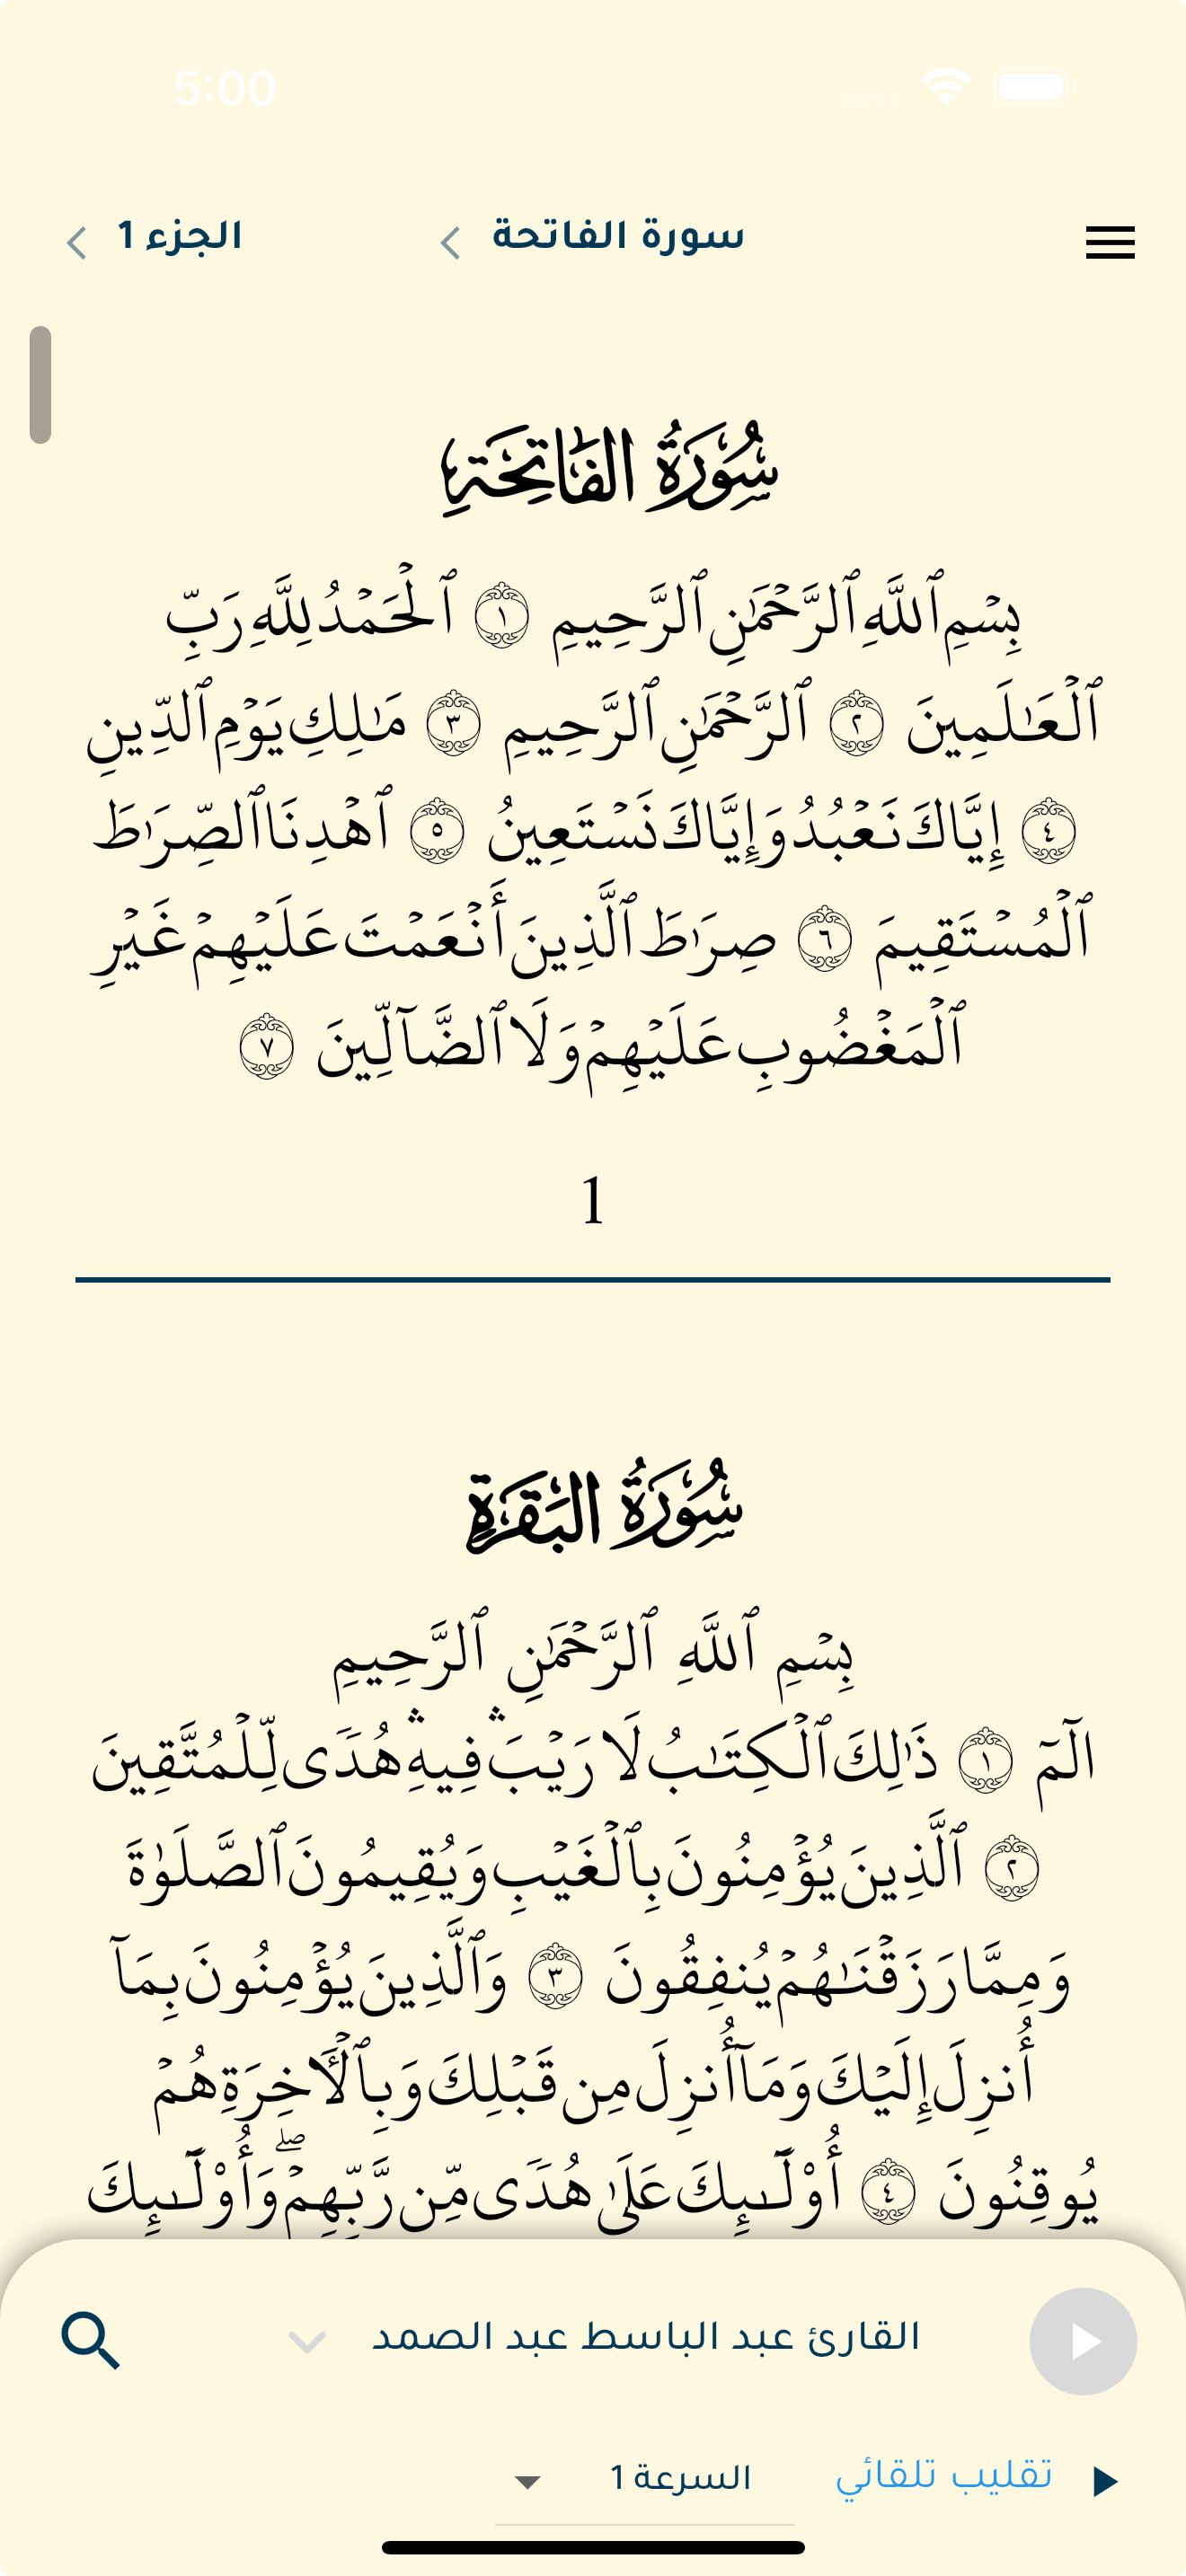 5:00
سورة الفاتحة
الجزء 1
سُورَةُ الفَاتِحَةِ
بِسۡمِ ٱللَّهِ ٱلرَّحۡمَٰنِ ٱلرَّحِيمِ ١ ٱلۡحَمۡدُ لِلَّهِ رَبِّ
ٱلۡعَٰلَمِينَ ٢ ٱلرَّحۡمَٰنِ ٱلرَّحِيمِ ٣ مَٰلِكِ يَوۡمِ ٱلدِّينِ
٤ إِيَّاكَ نَعۡبُدُ وَإِيَّاكَ نَسۡتَعِينُ ٥ ٱهۡدِنَا ٱلصِّرَٰطَ
ٱلۡمُسۡتَقِيمَ ٦ صِرَٰطَ ٱلَّذِينَ أَنۡعَمۡتَ عَلَيۡهِمۡ غَيۡرِ
ٱلۡمَغۡضُوبِ عَلَيۡهِمۡ وَلَا ٱلضَّآلِّينَ ٧
1
سُورَةُ البَقَرَةِ
بِسۡمِ ٱللَّهِ ٱلرَّحۡمَٰنِ ٱلرَّحِيمِ
الٓمٓ ١ ذَٰلِكَ ٱلۡكِتَٰبُ لَا رَيۡبَۛ فِيهِۛ هُدٗى لِّلۡمُتَّقِينَ
٢ ٱلَّذِينَ يُؤۡمِنُونَ بِٱلۡغَيۡبِ وَيُقِيمُونَ ٱلصَّلَوٰةَ
وَمِمَّا رَزَقۡنَٰهُمۡ يُنفِقُونَ ٣ وَٱلَّذِينَ يُؤۡمِنُونَ بِمَآ
أُنزِلَ إِلَيۡكَ وَمَآ أُنزِلَ مِن قَبۡلِكَ وَبِٱلۡأٓخِرَةِ هُمۡ
يُوقِنُونَ ٤ أُوْلَٰٓئِكَ عَلَىٰ هُدٗى مِّن رَّبِّهِمۡۖ وَأُوْلَٰٓئِكَ
القارئ عبد الباسط عبد الصمد
تقليب تلقائي
السرعة 1